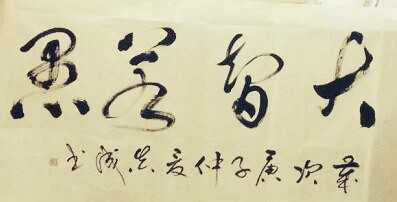 大智若愚
歲次庚子仲夏